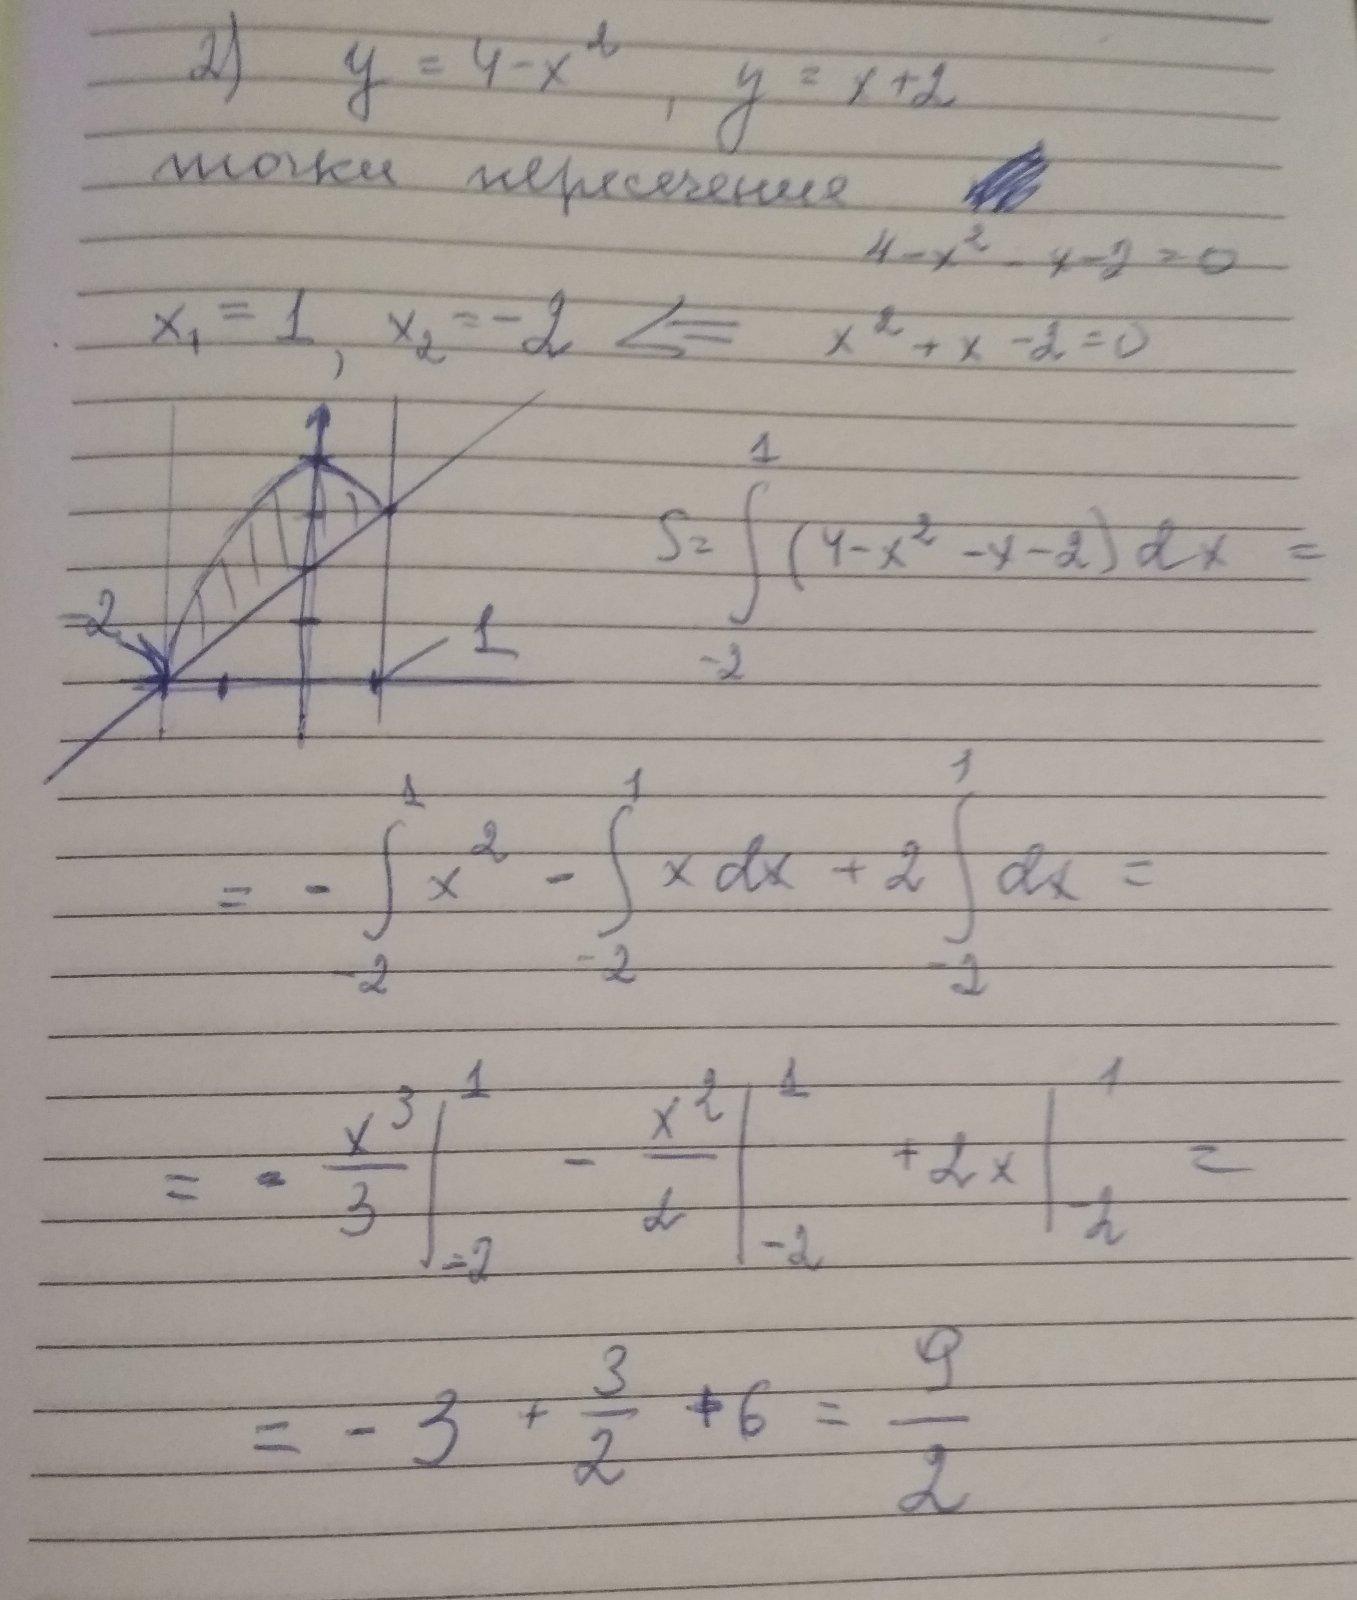 2) y = 4-x², y = x+2
точки пересечения
4-x²-x-2=0
x₁ = 1, x₂ = -2 <= x²+x-2=0
-2
1
S= ∫₋₂¹ (4-x²-x-2) dx =
= - ∫₋₂¹ x² - ∫₋₂¹ x dx + 2 ∫₋₂¹ dx =
= - x³/3 |₋₂¹ - x²/2 |₋₂¹ + 2x |₋₂¹ =
= - 3 + 3/2 + 6 = 9/2